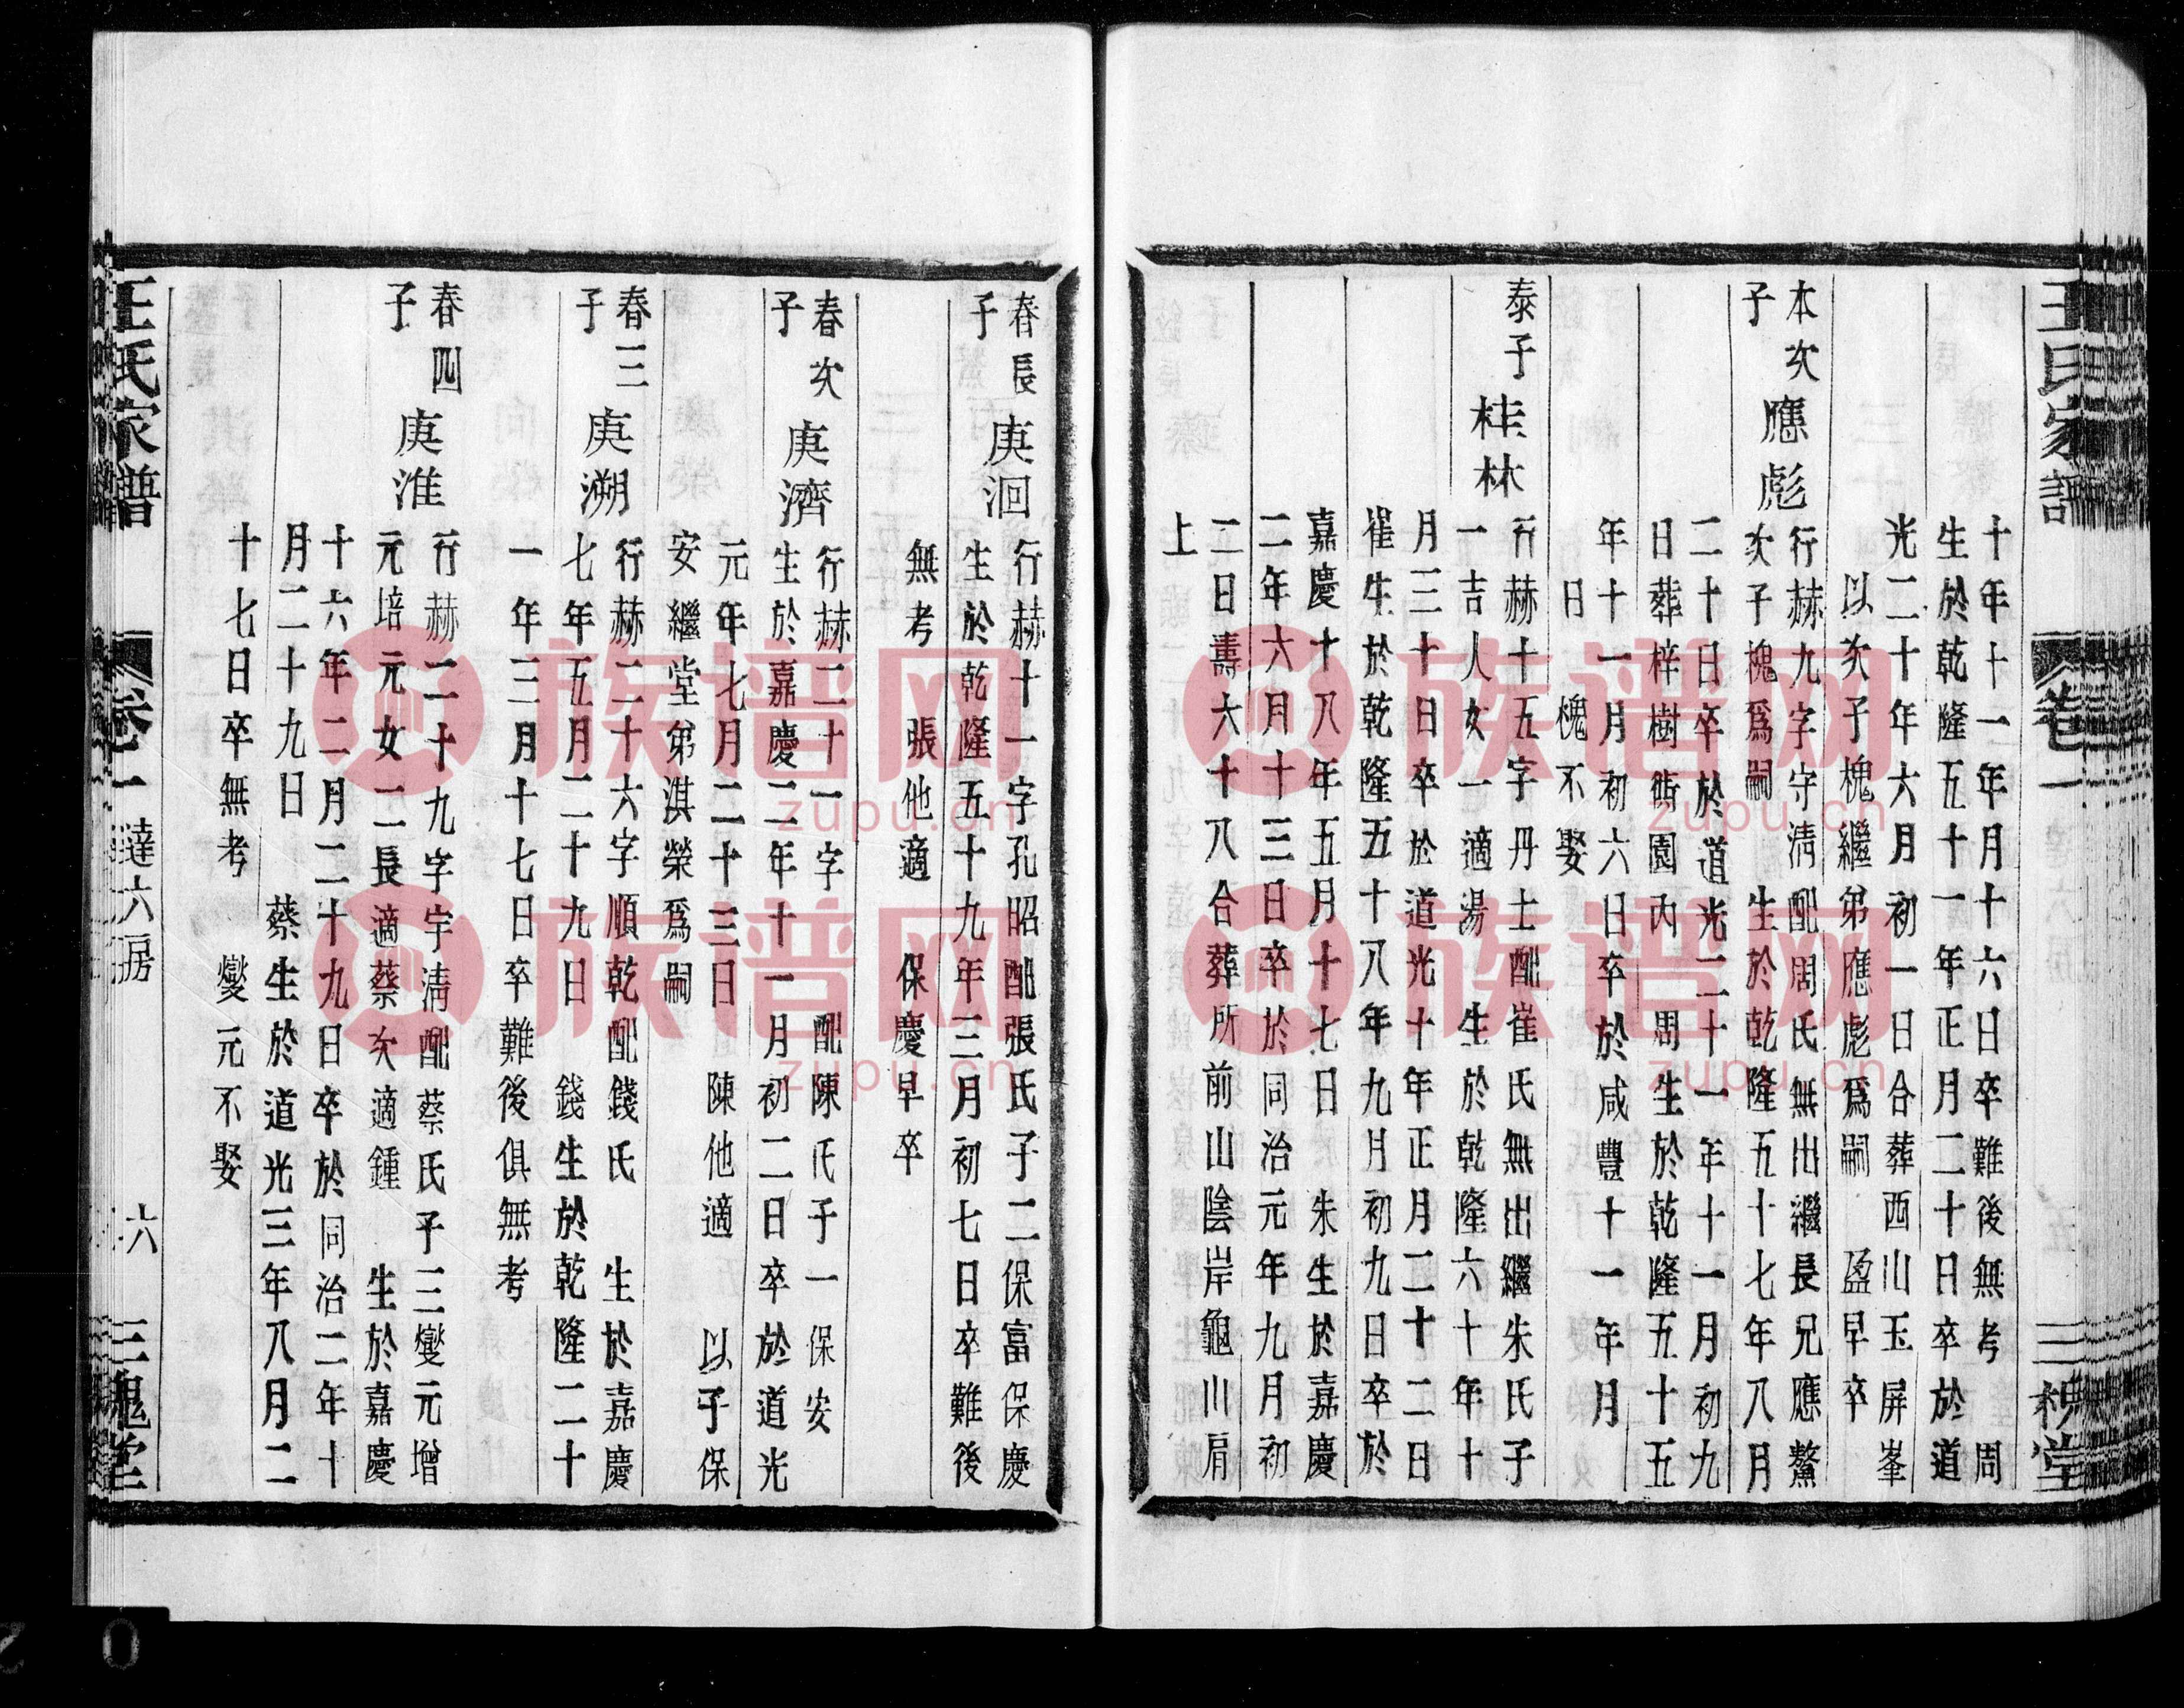 王氏家譜
卷一
三槐堂
十年十一年月十六日卒難後無考 周
生於乾隆五十一年正月二十日卒於道
光二十年六月初一日合葬西山玉屏峯
以次子槐繼弟應彪爲嗣 盈早卒
本次子 應彪 行赫九字守淸配周氏無出繼長兄應鰲
次子槐爲嗣 生於乾隆五十七年八月
二十日卒於道光二十一年十一月初九
日葬梓樹衖園內 周生於乾隆五十五
年十一月初六日卒於咸豐十一年月
日 槐不娶
泰子 桂林 行赫十五字丹士配崔氏無出繼朱氏子
一吉人女一適湯 生於乾隆六十年十
月三十日卒於道光十年正月二十二日
崔生於乾隆五十八年九月初九日卒於
嘉慶十八年五月十七日 朱生於嘉慶
二年六月十三日卒於同治元年九月初
二日壽六十八合葬所前山陰岸龜山肩
上
春長子 庚洄 行赫十一字孔昭配張氏子二保富保慶
生於乾隆五十九年三月初七日卒難後
無考 張他適 保慶早卒
春次子 庚濟 行赫二十一字 配陳氏子一保安
生於嘉慶二年十一月初二日卒於道光
元年七月二十三日 陳他適 以子保
安繼堂弟淇榮爲嗣
春三子 庚溯 行赫二十六字順乾配錢氏 生於嘉慶
七年五月二十九日 錢生於乾隆二十
一年三月十七日卒難後俱無考
春四子 庚淮 行赫二十九字宇淸配蔡氏子三燮元增
元培元女二長適蔡次適鍾 生於嘉慶
十六年二月二十九日卒於同治二年十
月二十九日 蔡生於道光三年八月二
十七日卒無考 燮元不娶
王氏家譜
卷一 達六房
六
三槐堂
族谱网
zupu.cn
族谱网
zupu.cn
族谱网
zupu.cn
族谱网
zupu.cn